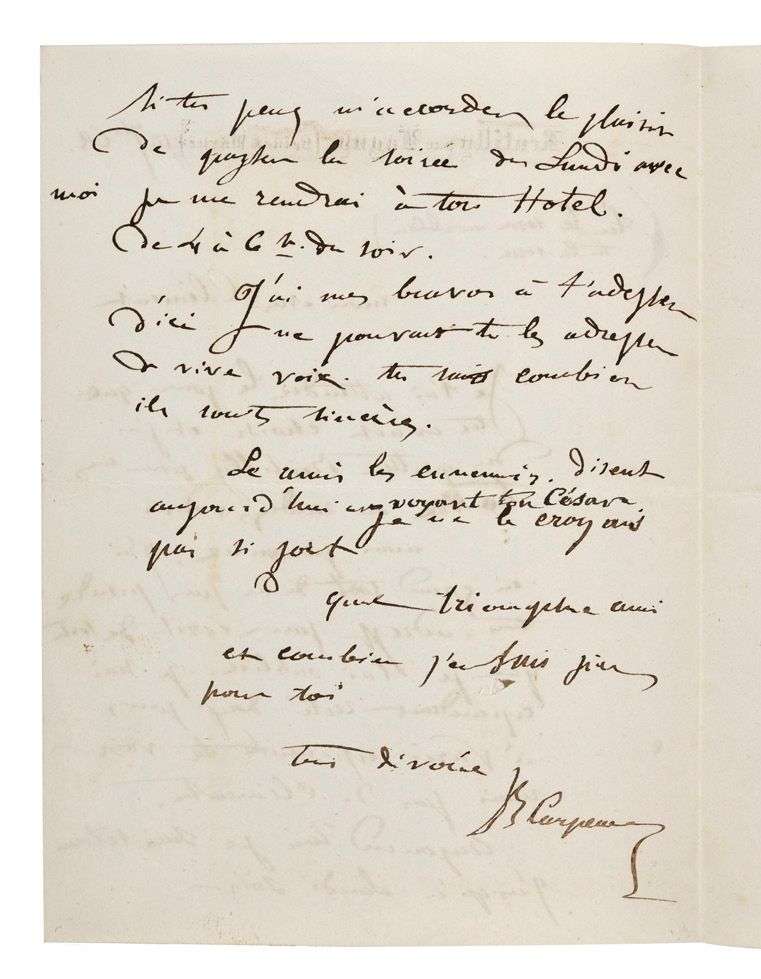 Si tu peux m'accorder le plaisir
de passer la soirée de Lundi avec
moi je me rendrai à ton Hotel.
de 4 à 6 h. du soir.
J'ai mes bravos à t'adresser
d'ici ne pouvant te les adresser
de vive voix. tu sais combien
ils sont sincères.
Le amis les ennemis. disent
aujourd'hui en voyant ton César
je ne le croyais
pas si fort
quel triomphe ami
et combien j'en suis fier
pour toi
ton dévoué
JB Carpeaux